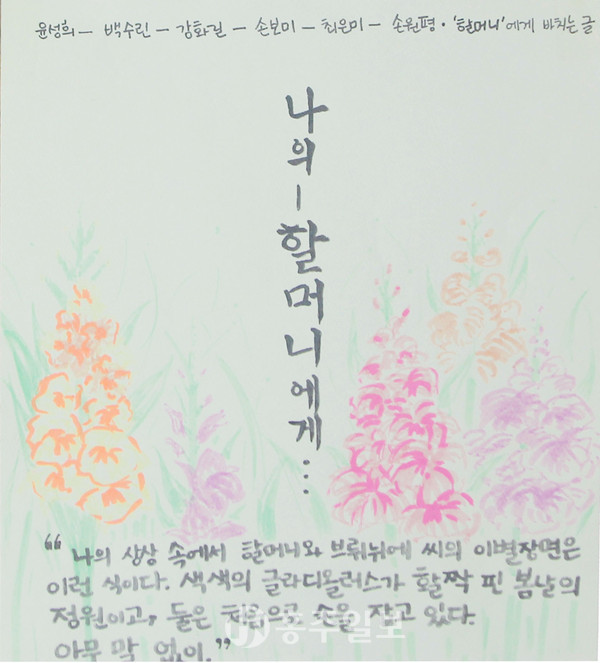 윤성희 — 백수린 — 강화길 — 손보미 — 최은미 — 손원평 · '할머니'에게 바치는 글
나의 — 할머니에게...
“ 나의 상상 속에서 할머니와 브뤼니에 씨의 이별장면은
이런 식이다. 색색의 글라디올러스가 활짝 핀 봄날의
정원이고, 둘은 처음으로 손을 잡고 있다.
아무 말 없이.”
중부일보